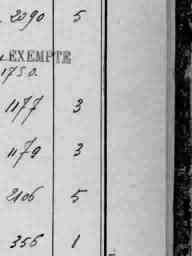 2090 5
EXEMPTE
1750.
1177 3
1179 3
2106 5
356 1